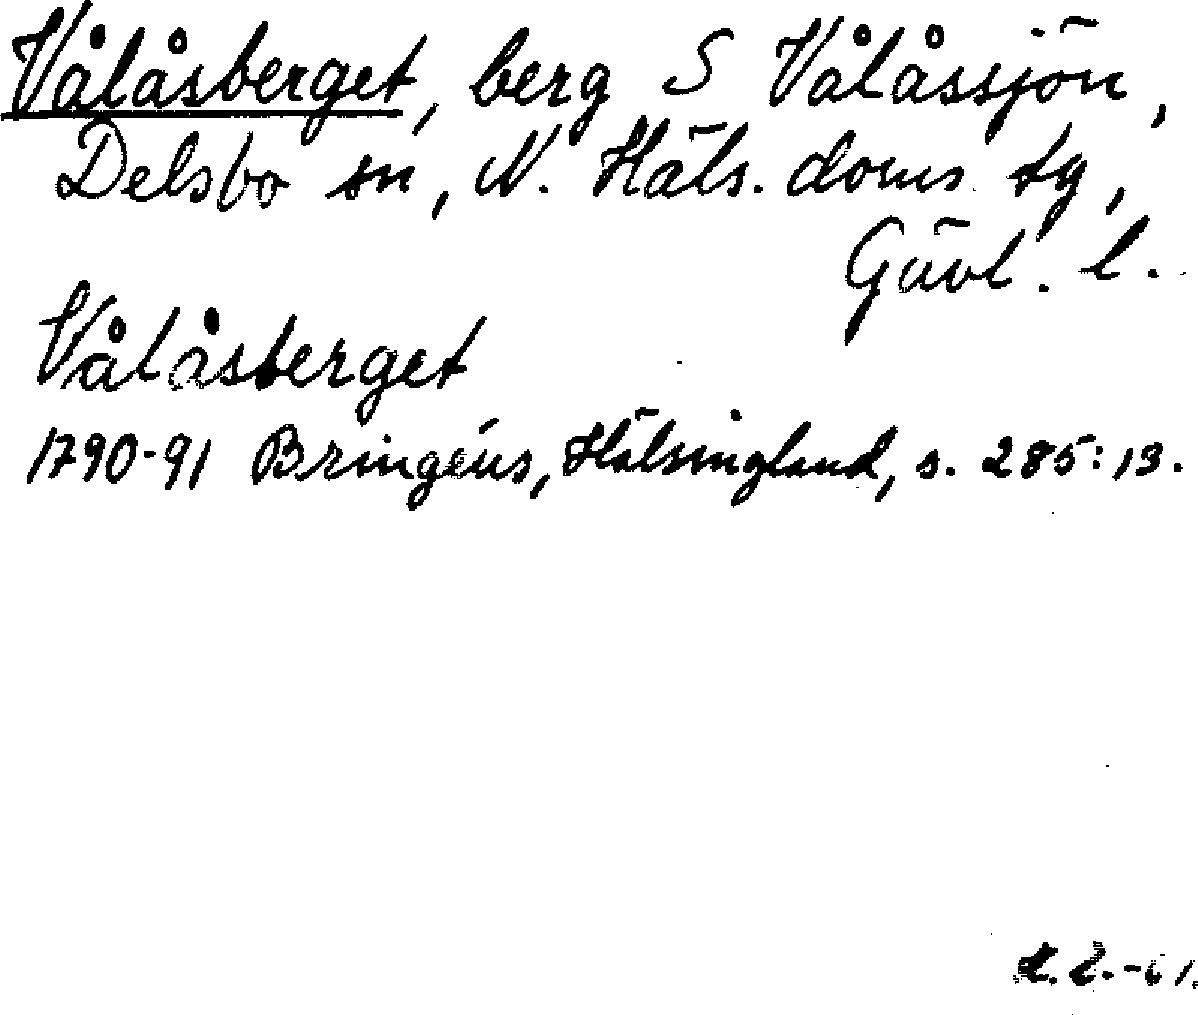 Vålåsberget, berg S Vålåssjön,
Delsbo sn, N. Häls. doms. tg,
Gävl. l.
Vålåsberget
1790-91 Bringéus, Hälsingland, s. 285:13.